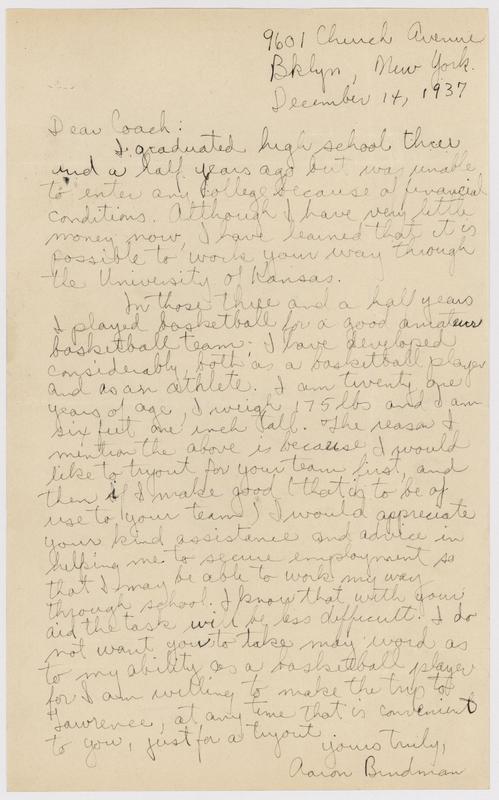 9601 Church Avenue
Bklyn, New York.
December 14, 1937
Dear Coach:
I graduated high school three
and a half years ago but was unable
to enter any college because of financial
conditions. Although I have very little
money now, I have learned that it is
possible to work your way through
the University of Kansas.
In those three and a half years
I played basketball for a good amateur
basketball team. I have developed
considerably, both as a basketball player
and as an athlete. I am twenty one
years of age, I weigh 175 lbs and I am
six feet one inch tall. The reason I
mention the above is because I would
like to tryout for your team first, and
then if I make good (that is to be of
use to your team) I would appreciate
your kind assistance and advice in
helping me to secure employment so
that I may be able to work my way
through school. I know that with your
aid the task will be less difficult. I do
not want you to take may word as
to my ability as a basketball player
for I am willing to make the trip to
Lawrence, at any time that is convenient
to you, just for a tryout
yours truly,
Aaron Bindman